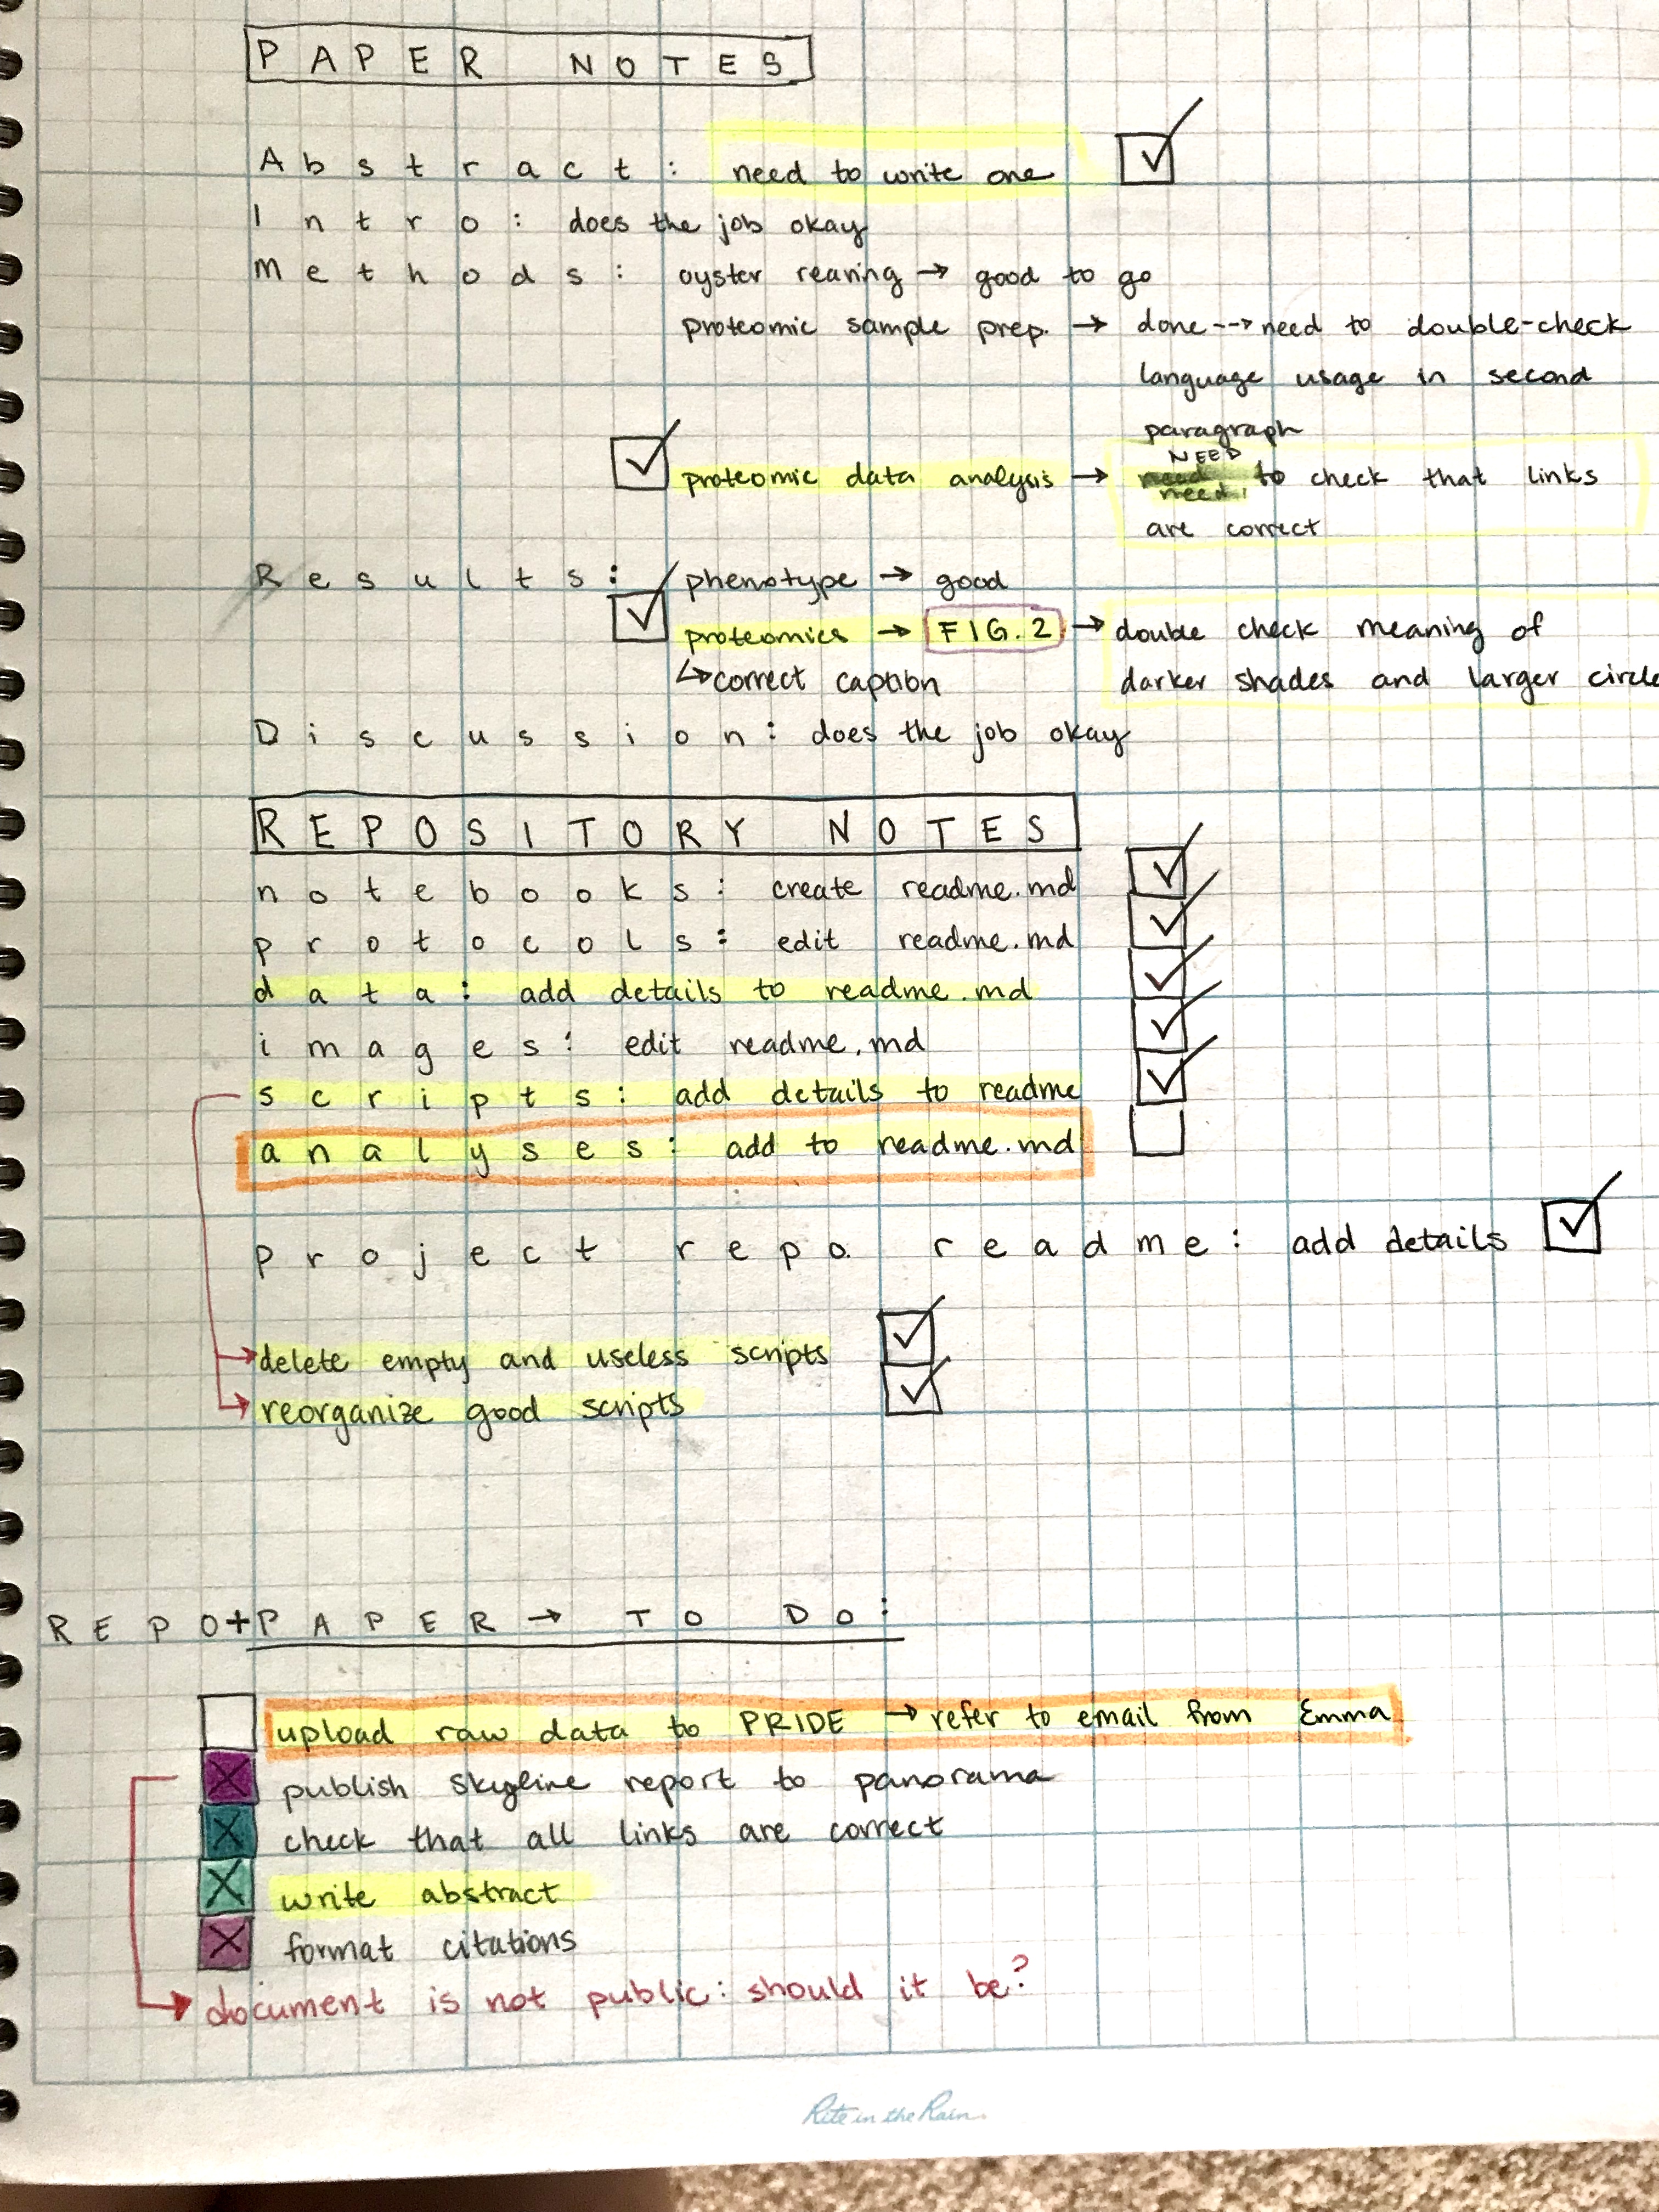 PAPER NOTES
Abstract: need to write one
Intro: does the job okay
Methods: oyster rearing → good to go
proteomic sample prep. → done --> need to double-check
language usage in second
paragraph
NEED
proteomic data analysis → need to check that links
need!
are correct
Results: phenotype → good
proteomics → FIG. 2 → double check meaning of
↳ correct caption darker shades and larger circle
Discussion: does the job okay
REPOSITORY NOTES
notebooks: create readme.md
protocols: edit readme.md
data: add details to readme.md
images: edit readme.md
scripts: add details to readme
analyses: add to readme.md
project repo. readme: add details
→ delete empty and useless scripts
→ reorganize good scripts
REPO+PAPER → TO DO:
upload raw data to PRIDE → refer to email from Emma
publish skyline report to panorama
check that all links are correct
write abstract
format citations
→ document is not public: should it be?
Rite in the Rain